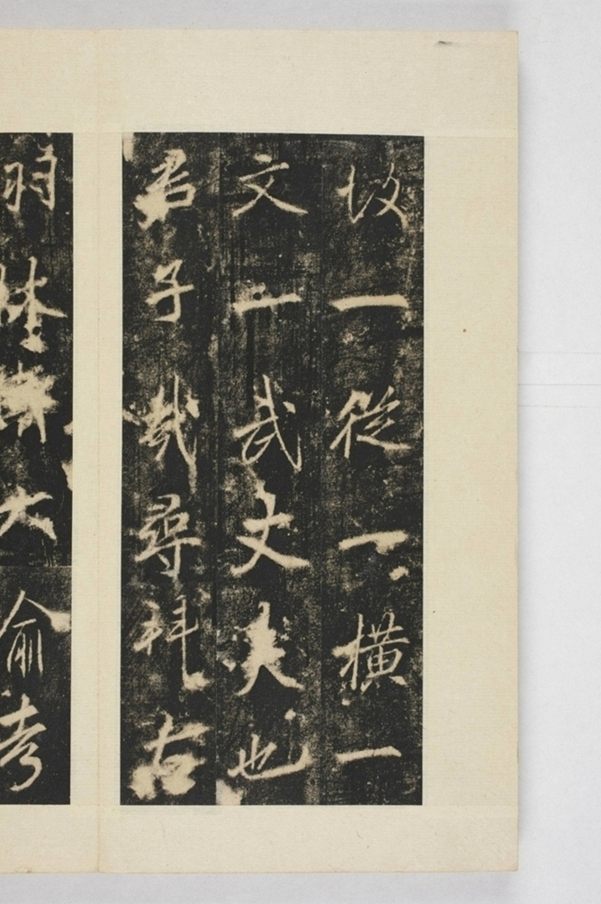 故一從一橫一
文一武丈夫也
君子哉尋拜右
羽林大俞考